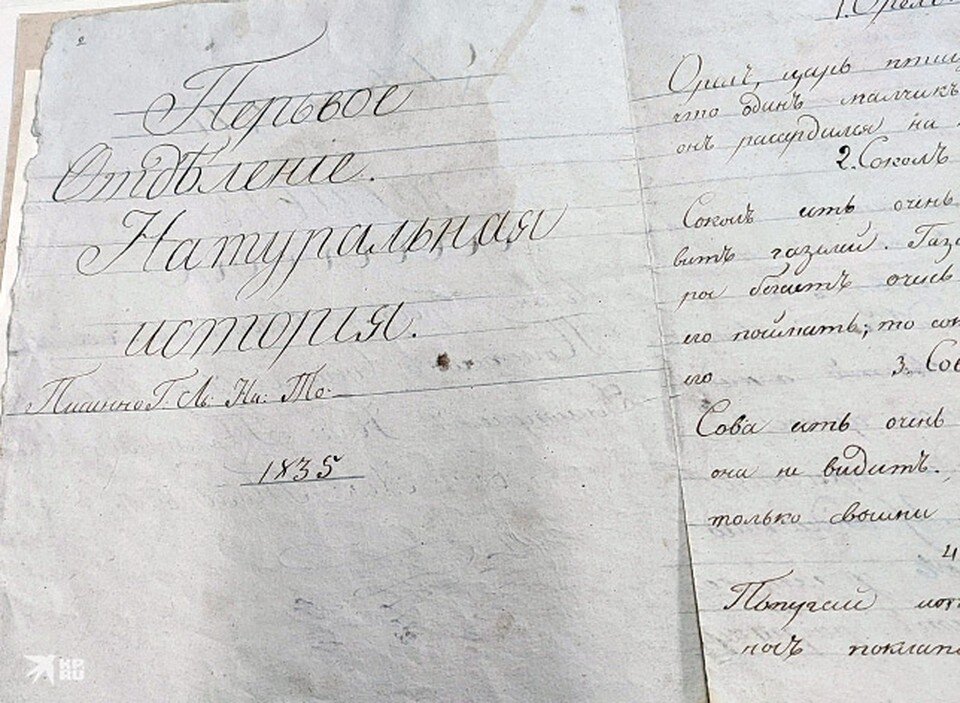 Перьвое
Отдѣленіе.
Натуральная
исторія.
Писанно Г. Ль: Ни: То:
1835
1. Орелъ.
Орелъ, царь птицъ
что одинъ малчикъ
онъ расердился на
2. Соколъ
Соколъ есть очень
витъ газелей. Газе
рое бегаетъ очень
его поймать; то сок
его 3. Сов
Сова есть очень
она не видитъ.
только
4
Попугай
носъ
KP.RU